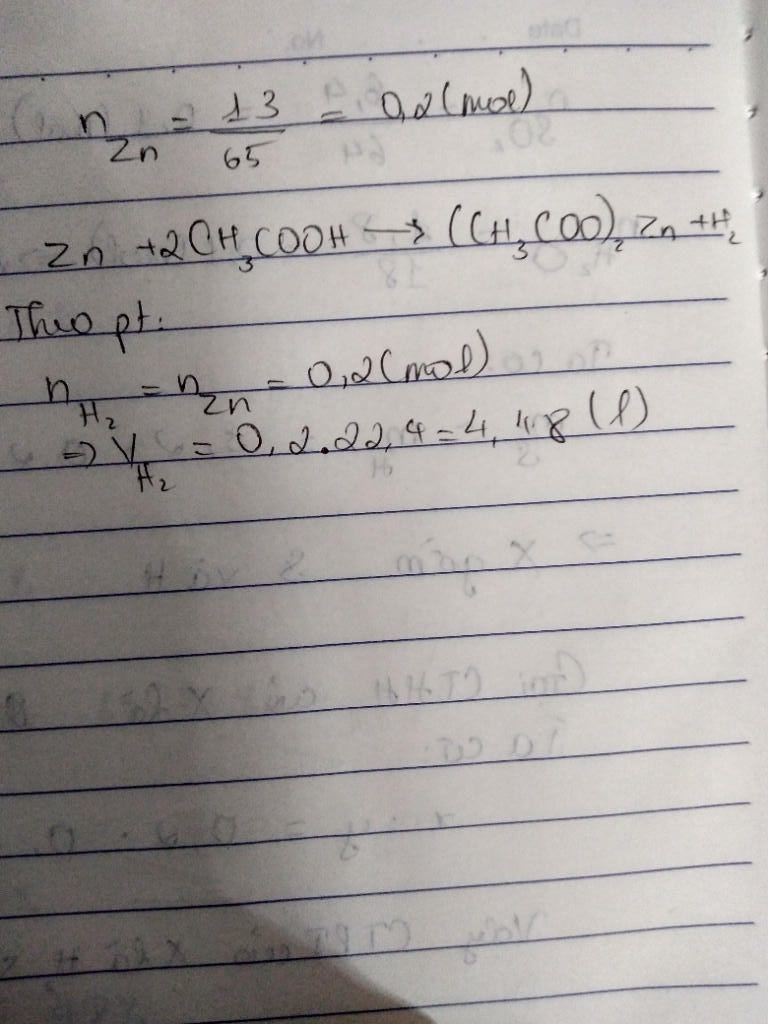 n_Zn = 13/65 = 0,2 (mol)
Zn + 2CH₃COOH → (CH₃COO)₂ Zn + H₂
Theo pt:
n_H₂ = n_Zn = 0,2 (mol)
⇒ V_H₂ = 0,2.22,4 = 4,48 (l)